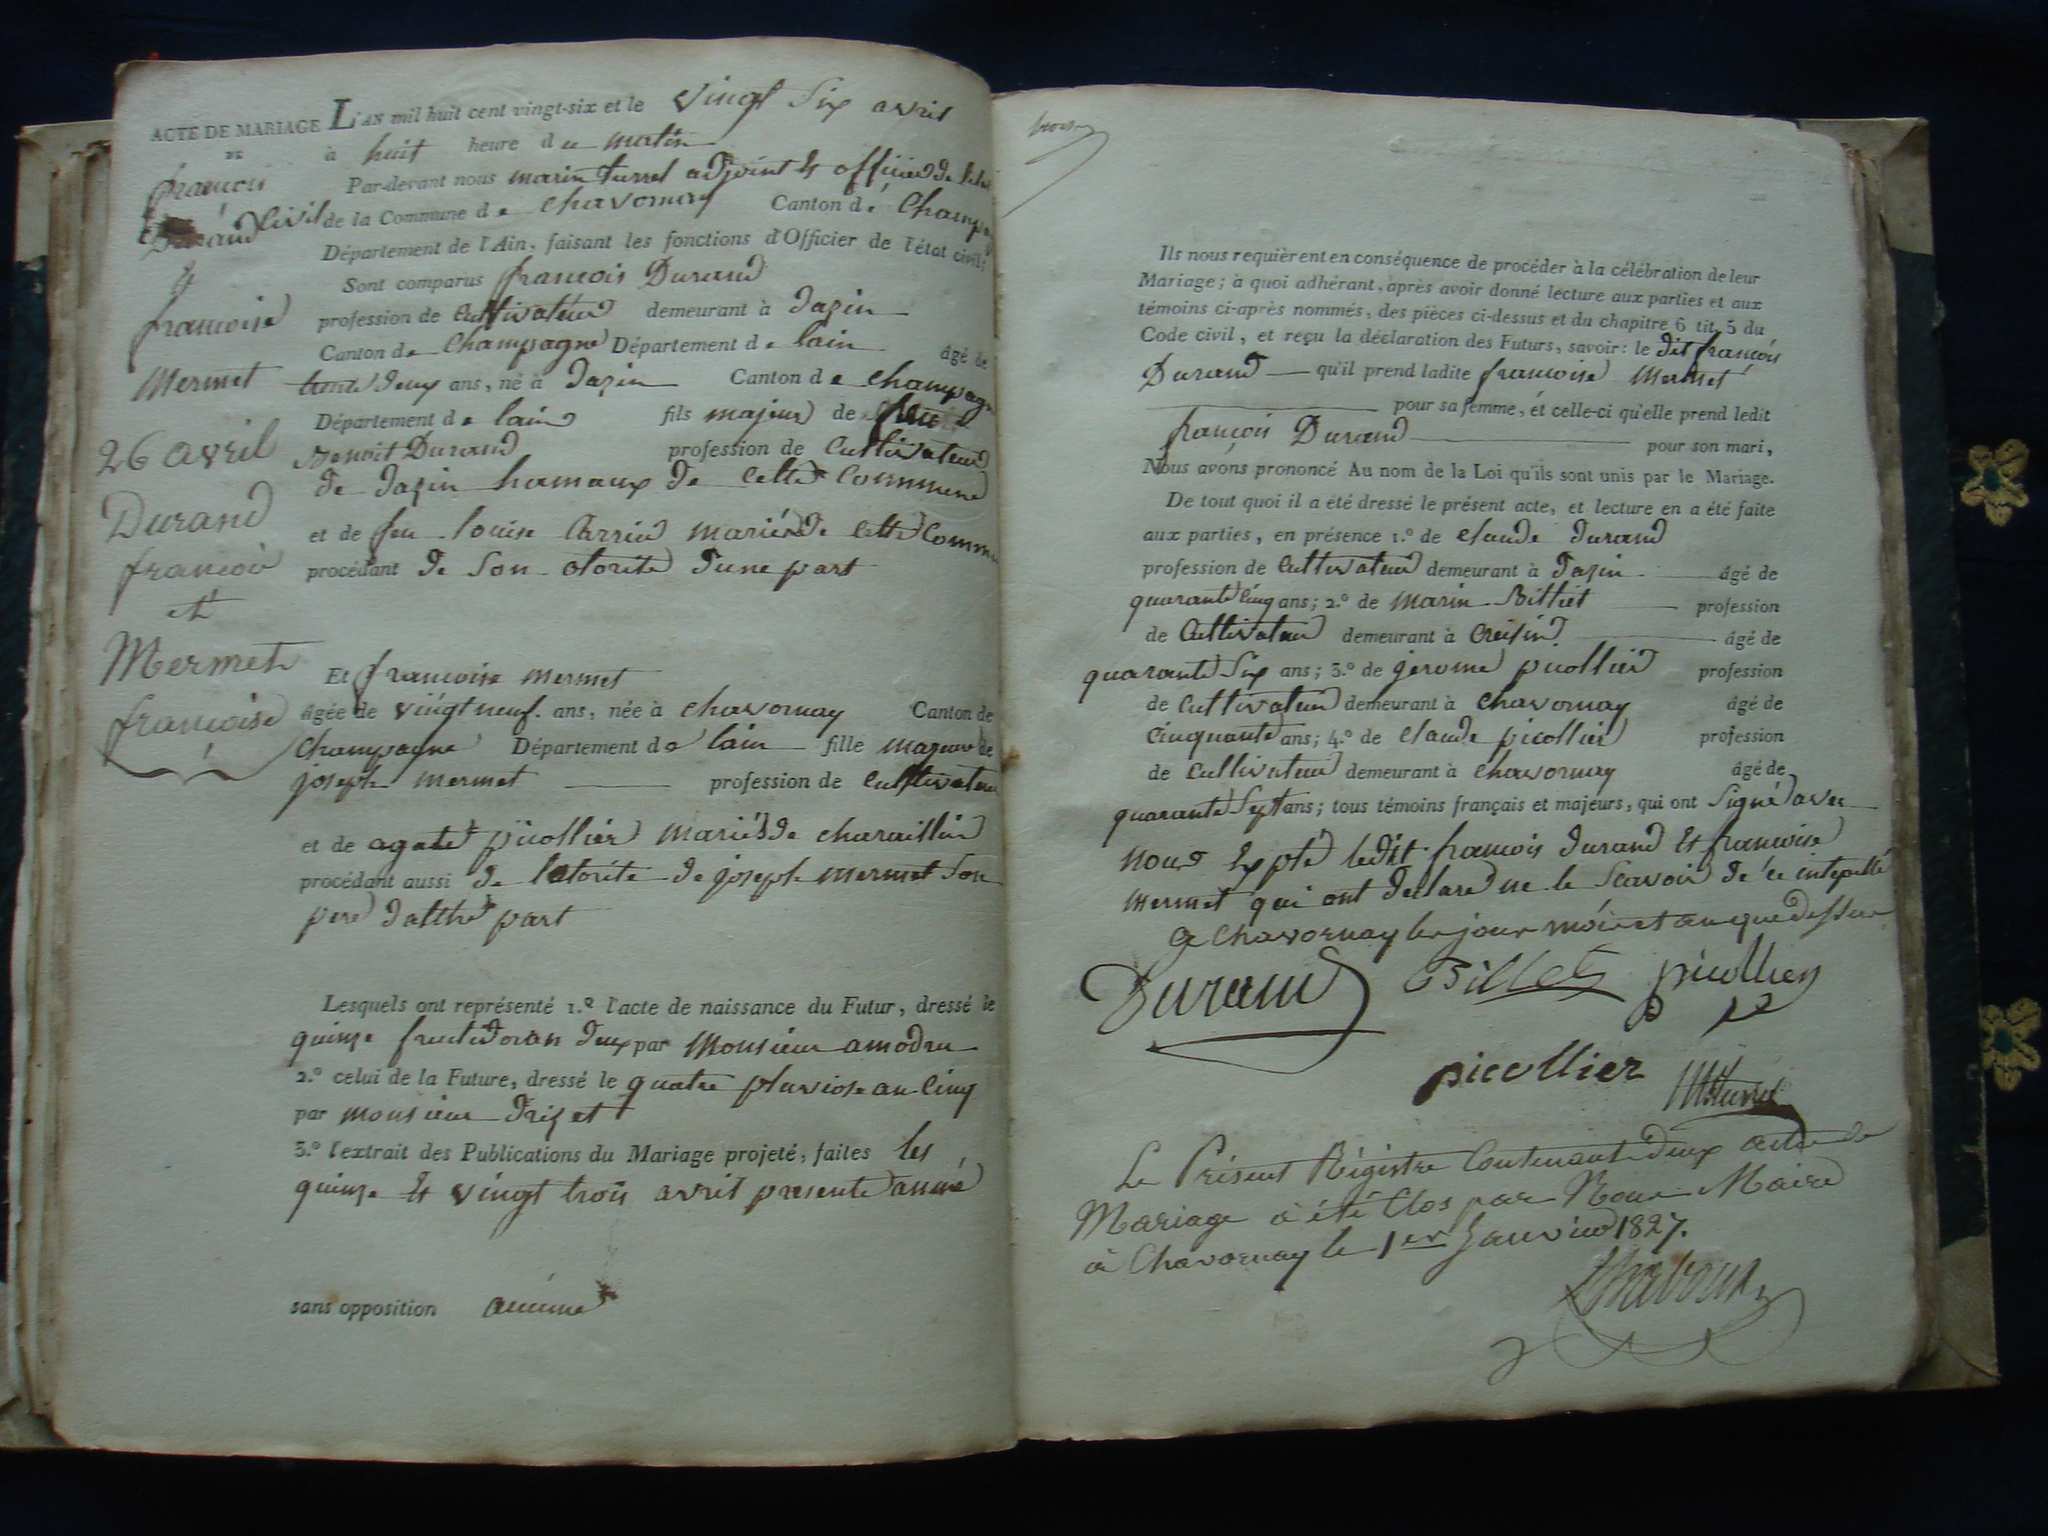 ACTE DE MARIAGE L'AN mil huit cent vingt-six et le vingt six avril
DE à huit heure du matin
francois Par-devant nous marin turrel adjoint et officier de letat
Durand Civil de la Commune de chavornay Canton de Champagne
Département de l'Ain, faisant les fonctions d'Officier de l'état civil;
&
Sont comparus francois Durand
francoise profession de Cultivateur demeurant à dazin
Canton de Champagne Département de lain âgé de
Mermet trente deux ans, né à dazin Canton de champagne
Département de lain fils majeur de
26 avril Benoit Durand profession de Cultivateur
de dazin hamaux de cette Commune
Durand
et de feu louise mariés de cette Commune
françois procédant de son otorité dune part
et
Mermet
Et francoise mermet
françoise âgée de vingt neuf ans, née à chavornay Canton de
Champagne Département de lain fille majeure de
joseph mermet profession de Cultivateur
et de agate picollier mariés de charaillin
procédant aussi de lotorité de joseph mermet son
pere dautre part
Lesquels ont représenté 1.º l'acte de naissance du Futur, dressé le
quinze fructidor an deux par Monsieur amodru
2.º celui de la Future, dressé le quatre pluviose an cinq
par monsieur
3.º l'extrait des Publications du Mariage projeté, faites les
quinze et vingt trois avril presente année
sans opposition aucune
Ils nous requièrent en conséquence de procéder à la célébration de leur
Mariage; à quoi adhérant, après avoir donné lecture aux parties et aux
témoins ci-après nommés, des pièces ci-dessus et du chapitre 6 tit. 5 du
Code civil, et reçu la déclaration des Futurs, savoir: le dit françois
Durand qu'il prend ladite francoise Mermet
pour sa femme, et celle-ci qu'elle prend ledit
françois Durand pour son mari,
Nous avons prononcé Au nom de la Loi qu'ils sont unis par le Mariage.
De tout quoi il a été dressé le présent acte, et lecture en a été faite
aux parties, en présence 1.º de claude durand
profession de Cultivateur demeurant à dazin âgé de
quarante cinq ans; 2.º de Marin Billiet profession
de Cultivateur demeurant à âgé de
quarante six ans; 3.º de jerome picollier profession
de Cultivateur demeurant à chavornay âgé de
cinquante ans; 4.º de claude picollier profession
de Cultivateur demeurant à chavornay âgé de
quarante sept ans; tous témoins français et majeurs, qui ont signé avec
nous expté ledit francois durand et francoise
mermet qui ont declaré ne le scavoir de ce intepellé
a chavornay les jour mois et an que dessus
Durand Billet picollier
picollier MTurrel
Le Présent Régistre Contenant deux actes de
Mariage a été Clos par Nous Maire
à Chavornay le 1er Janvier 1827.